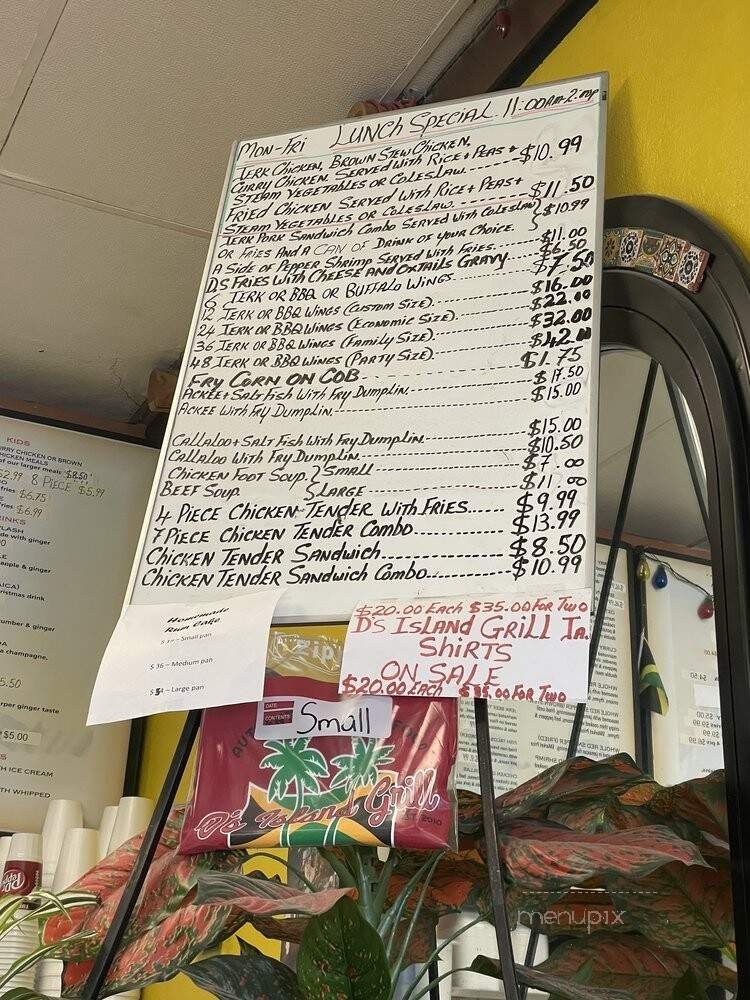 MON-FRI LUNCH SPECIAL 11:00AM-2:00P
JERK CHICKEN, BROWN STEW CHICKEN,
CURRY CHICKEN. SERVED WITH RICE + PEAS + $10.99
STEAM VEGETABLES OR COLESLAW.
FRIED CHICKEN SERVED WITH RICE + PEAS + $11.50
STEAM VEGETABLES OR COLESLAW.
JERK PORK SANDWICH COMBO SERVED WITH COLESLAW $10.99
OR FRIES AND A CAN OF DRINK OF YOUR CHOICE.
A SIDE OF PEPPER SHRIMP SERVED WITH FRIES. $11.00
D.S FRIES WITH CHEESE AND OXTAILS GRAVY $6.50
6 JERK OR BBQ OR BUFFALO WINGS $7.50
12 JERK OR BBQ WINGS (CUSTOM SIZE). $16.00
24 JERK OR BBQ WINGS (ECONOMIC SIZE). $22.00
36 JERK OR BBQ WINGS (FAMILY SIZE). $32.00
48 JERK OR BBQ WINGS (PARTY SIZE). $42.00
FRY CORN ON COB $1.75
ACKEE + SALT FISH WITH FRY DUMPLIN. $17.50
ACKEE WITH FRY DUMPLIN. $15.00
CALLALOO + SALT FISH WITH FRY DUMPLIN. $15.00
CALLALOO WITH FRY DUMPLIN. $10.50
CHICKEN FOOT SOUP. SMALL $7.00
BEEF SOUP. LARGE $11.00
4 PIECE CHICKEN TENDER WITH FRIES $9.99
7 PIECE CHICKEN TENDER COMBO $13.99
CHICKEN TENDER SANDWICH $8.50
CHICKEN TENDER SANDWICH COMBO $10.99
Homemade
Rum Cake
Small pan
$36 – Medium pan
Large pan
$20.00 EACH $35.00 FOR TWO
D'S ISLAND GRILL JA.
SHIRTS
ON SALE
$20.00 EACH $35.00 FOR TWO
Zip
DATE:
CONTENTS:
Small
D's Island Grill
EST. 2010
KIDS
CURRY CHICKEN OR BROWN
CHICKEN MEALS
of our larger meals $8.50
$2.99 8 PIECE $5.99
fries $6.75
fries $6.99
DRINKS
SPLASH
made with ginger
apple & ginger
Christmas drink
cucumber & ginger
champagne,
$5.50
per ginger taste
$5.00
WITH ICE CREAM
WITH WHIPPED
Dr Pepper
menupix